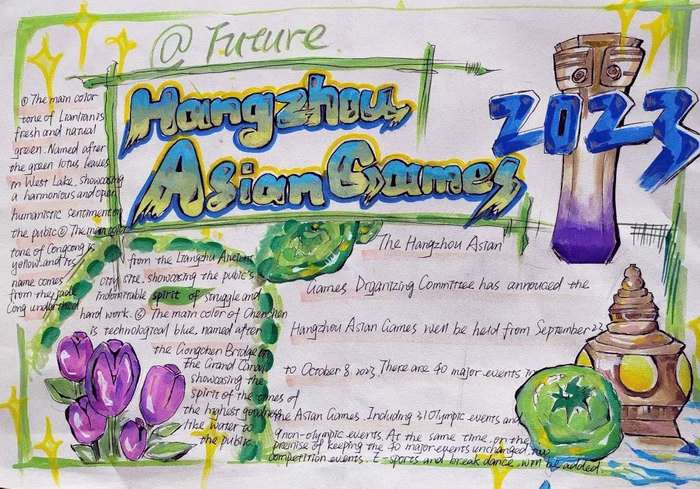 @ Future
Hangzhou
Asian Games
2023
① The main color
tone of Lianlian is
fresh and natual
green. Named after
the green lotus leaves
in West Lake, showcasing
a harmonious and open
humanistic sentiment on
the public ② The main color
tone of Congcong is
yellow. and its
name comes
from the jade
Cong unearthed
from the Liangzhu Ancient
city site, showcasing the pubic's
indomitable spirit of struggle and
hard work. ③ The main color of Chenchen
is technological blue, named after
the Gongchen Bridge in
The Grand Canal
showcasing the
spirit of the times of
the highest goodness
like water to
the public.
The Hangzhou Asian
Games Organizing Committee has annouced the
Hangzhou Asian Games will be held from September 23
to October 8. 2023. There are 40 major events in
the Asian Games. Including 31 Olympic events and
9 non-olympic events. At the same time, on the
premise of keeping the 40 major events unchanged, two
competition events. E-sports and break dance, will be added.